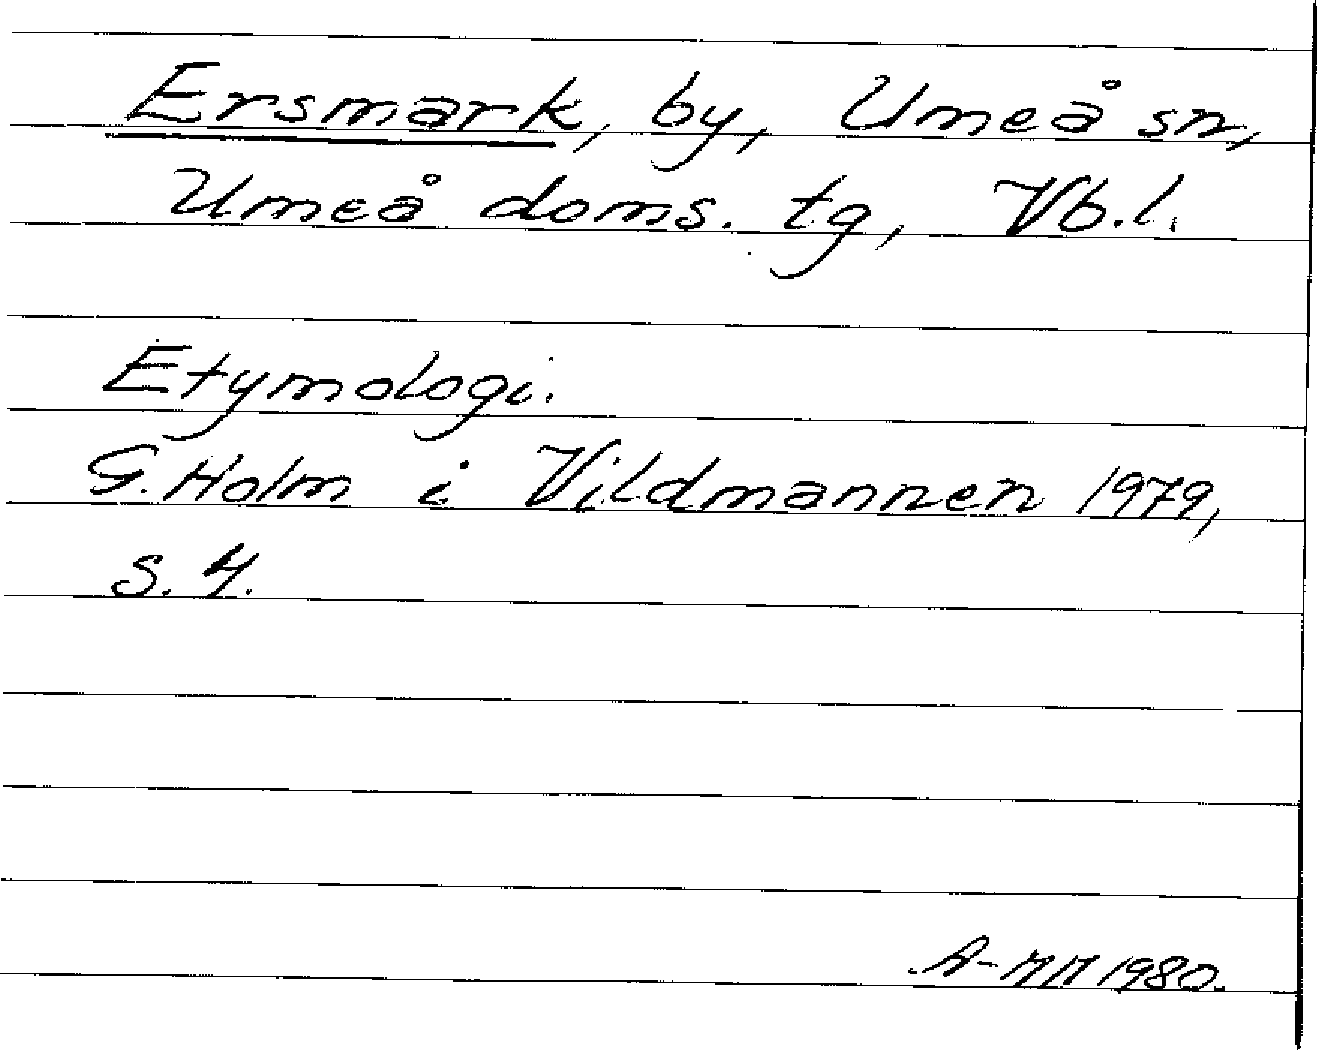 Ersmark, by, Umeå sn,
Umeå doms. tg, Vb.l.
Etymologi.
G. Holm i Vildmannen 1979,
s. 4.
A-MH 1980.